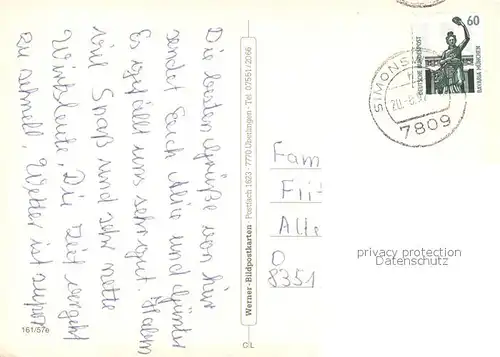 Die besten Grüße von hier
sendet Euch Alio und Günter
Es gefällt uns sehr gut. Haben
viel Spaß und sehr nette
Wirtsleute, Die Zeit vergeht
zu schnell, Wetter ist super
161/57e
Werner-Bildpostkarten · Postfach 1623 · 7770 Überlingen · Tel. 07551/2066
CL
Fam
Fri
Alte
O
8351
60
DEUTSCHE BUNDESPOST
BAVARIA MÜNCHEN
SIMONS
20.-6.9
7809
privacy protection
Datenschutz